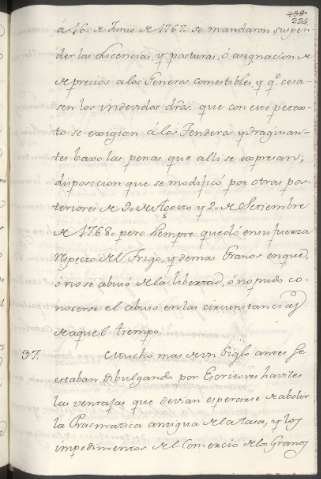 á 16. de Junio de 1767. se mandaron suspen
der las Licencias, y posturas, ó asignacion de
de precios a los Generos comestibles, y qe. cesa
sen los indevidos dros. que con este pretex
to se exigian á los Tenderos, y Traguian
tes baxo las penas que alli se expresan,
disposicion que se modificó por otras pos
teriores de de Agosto y 2. de Setiembre
de 1768. pero siempre quedó en su fuerza
respecto del Trigo, y demas Granos en que
ó no se abusó de la libertad, ó no pudo co
nocerse el abuso en las circunstancias
de aquel tiempo.
37. Mucho mas de un Siglo antes se
estaban divulgando por Escritores habiles
las ventajas que devian esperarse de abolir
la Pracmatica antigua de la tasa, y los
impedimentos del Comercio de los Granos